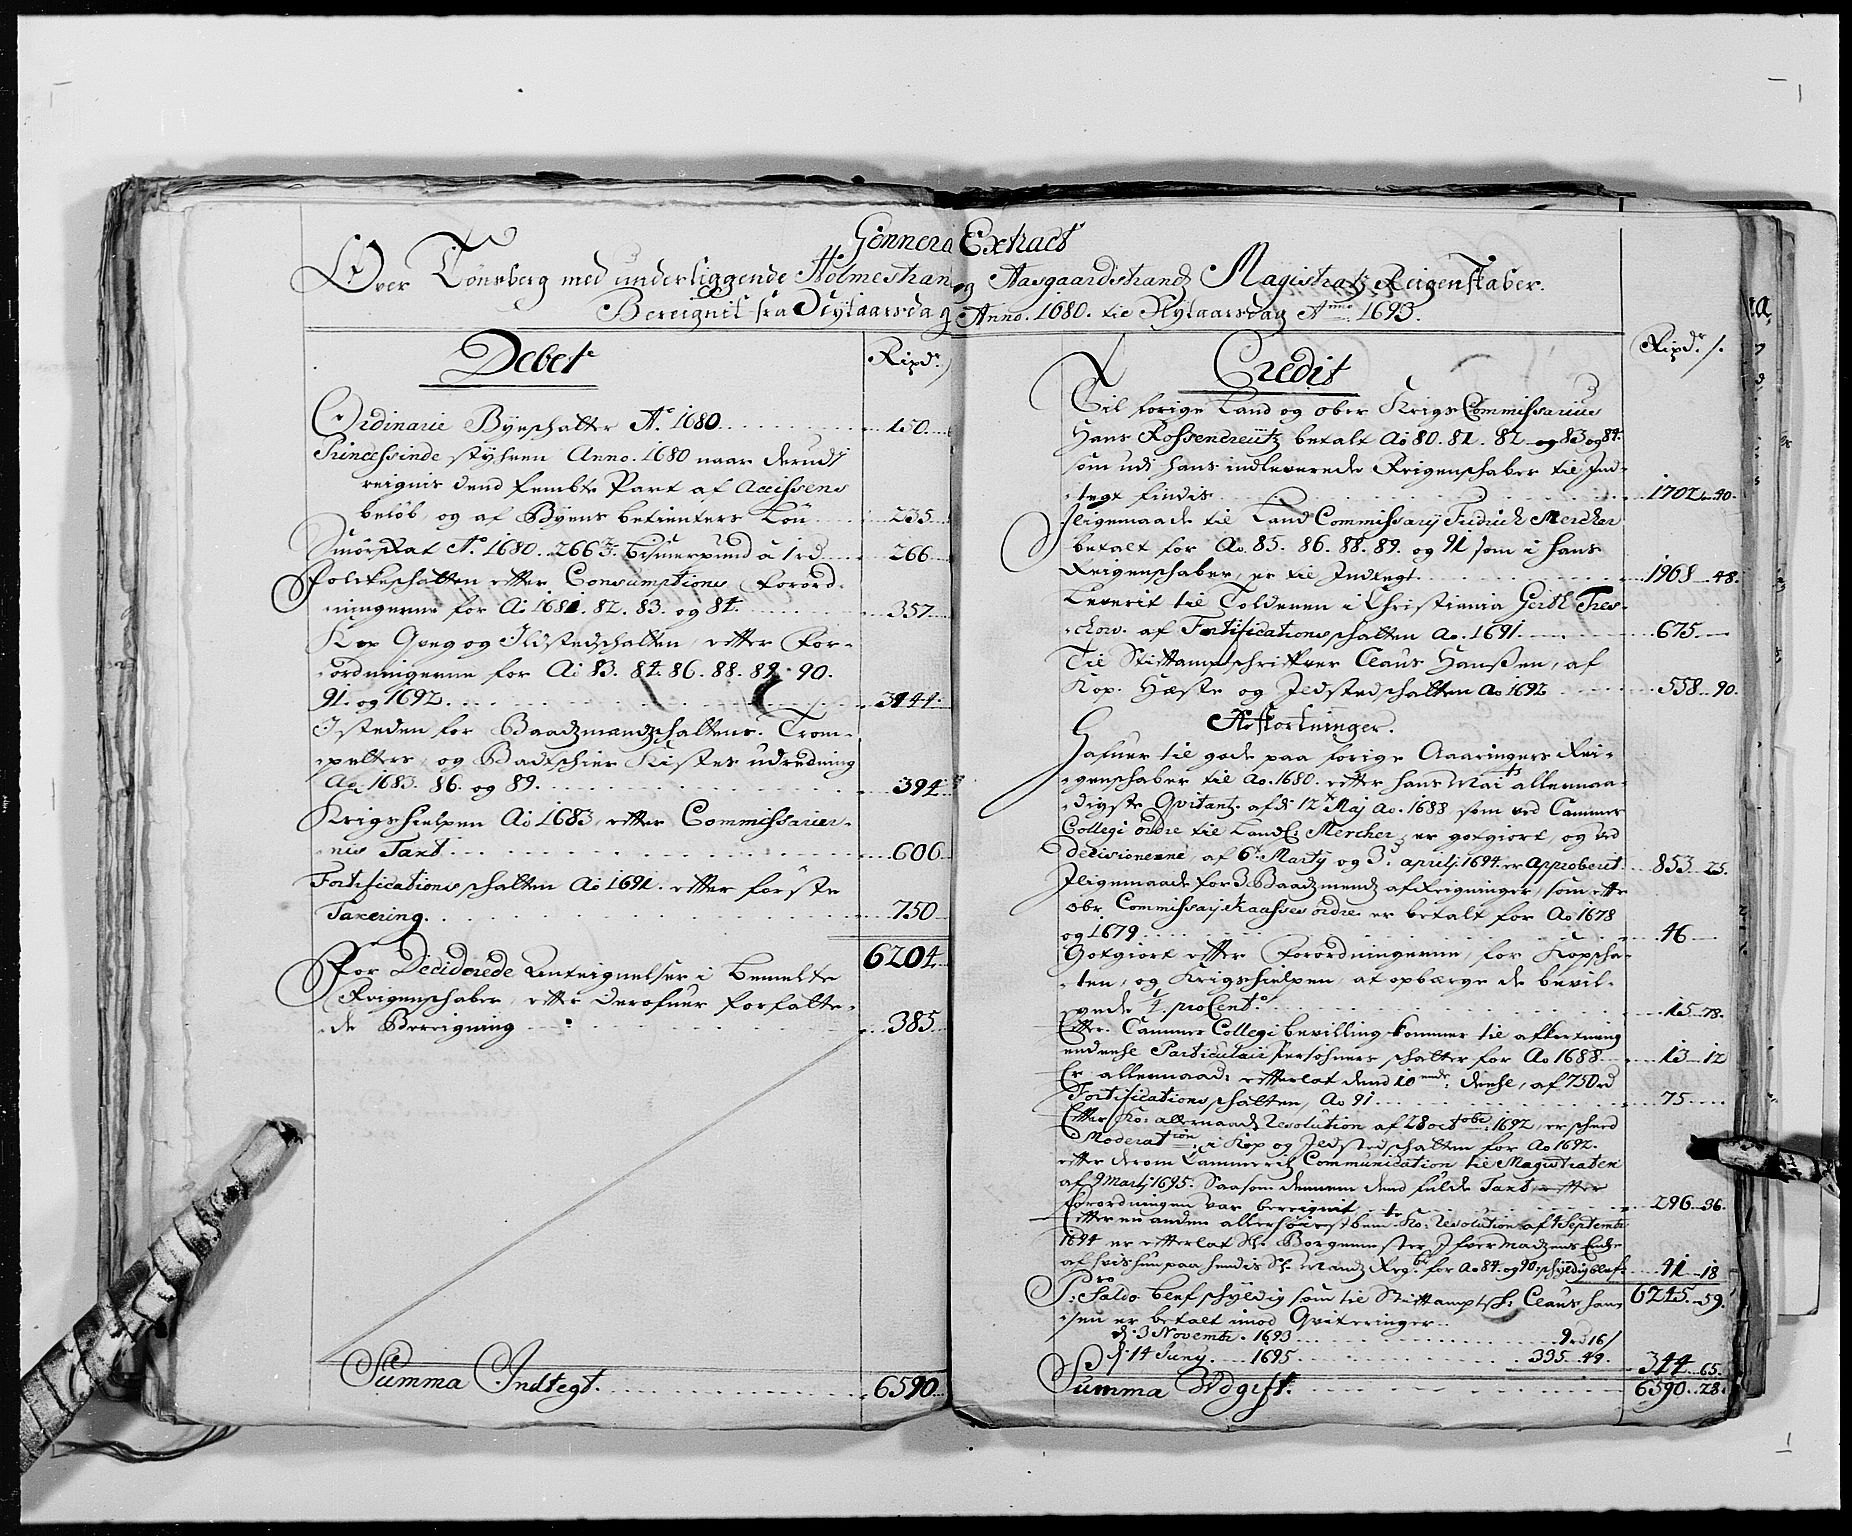 Gennera Extract
Over Tönsberg med underliggende Holmestran og Aasgaardstrandz Magistratz Reigenskaber.
Bereignit fra Nytaarsdag Anno. 1680. til Nytaarsdag Anno 1693.
Debet
Rixdr.
Ordinarie Byeschatter Ao. 1680 150
Princessinde styhren Anno. 1680 naar derudj
reignis dend fembte Part af Accissens
beløb, og af Byens betienters Lön 235
Smörskat Ao. 1680. 266 2/3 bismerpund a 1 rd 266
Folckeschatten efter Consumptions Forord-
ningerne for Ao 1681. 82. 83. og 84. 357
Kop Qveg og Ildstedschatten, efter For-
ordningerne for Ao 83. 84. 86. 88. 89. 90.
91. og 1692. 3444
I steden for Baadzmandzschattens. Trom-
petters, og Badtschier Kistes udredning
Ao 1683. 86. og 89. 394
Krigshielpen Ao 1683, efter Commissarier-
nis Taxt 606
Fortifications schatten Ao 1691. efter förste
Taxering. 750
6204
For Deciderede Anteignelser i bemelte
Reigenschaber, efter derofuer forfatte-
de Bereigning 385
Summa Indtegt. 6590
Credit
Rixdr. s.
Til forige Land og ober Krigs Commissarius
Hans Rossencreütz betalt Ao 80. 81. 82. og 83 og 84.
som udi hans indleverede Reigenschaber til Ind-
tegt findis 1702 40.
Iligemaade til Land Commissarij Fridrich Mercher
betalt for Ao. 85. 86. 88. 89. og 91 som i hans
Reigenschaber, er til Indtegt. 1968 48.
Leverit til Tolderen i Christiania Gerth Tres-
chow. af Fortifications schatten Ao. 1691. 675
Til Stiftamptschrifver Claus Hanssen, af
Kop. Hæste og Ildstedschatten Ao 1692 558 90.
Afkortninger.
Hafuer til gode paa forige Aaaringers Rei-
genschaber til Ao. 1680. efter hans Maits allernaa-
digste Qvitantz. af di 12te Maj Ao. 1688 som ved Cammer
Collegi ordre til LandC: Mercher, er gotgiort, og ved
decisionerne, af 6t. Martij og 3d. aprilj 1694 er Approberit 853 25.
Iligemaade for 3 Baadzmends afreigninger, som efter
obr. Commissarj Kaasses ordre er betalt for Ao 1678
og 1679 46
Gotgiort efter Forordningerne, for Kopscha-
ten, og Krigshielpen, at opbærge de bevil-
gede 1/4 proCento. 15 78.
Efter Cammer Collegi bevilling kommer til afkortning
endeehl Particulair Persohners schatter for Ao 1688 13 12
Er allernaad: efterlat dend 10ende: deehl, af 750 rd
Fortifications schatten, Ao 91 75
Efter Ko: allernaadz Resolution af 28 octobr: 1692, er scheed
Moderation, i Kop og Ildstedschatten for Ao 1692.
efter derom Cammeritz Communication til Magistraten
af 9 Martj 1695. Saasom dennem dend fulde Taxt, efter
forordningen var bereignit, 296 36.
Efter en anden allerhöieste bem. Ko: Resolution af 4 Septembr
1694 er efterlat Sl. Borgemester Ifver Madzens Encke
af hvis hun paa hendis Sl. Mandz Reg. for Ao 84. og 90. schyldig blef. 41 18
6245. 59.
Pro. Saldo blef schyldig som til Stiftamptsch: Claus han-
sen er betalt imod Qviteringer.
d. 3 Novembr. 1693 9 rd 16 s
d. 14 Juny. 1695 335 49. 344 65.
Summa Udgift. 6590. 28.